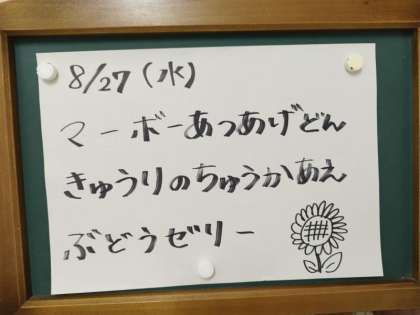 8/27(水)
マーボーあつあげどん
きゅうりのちゅうかあえ
ぶどうゼリー